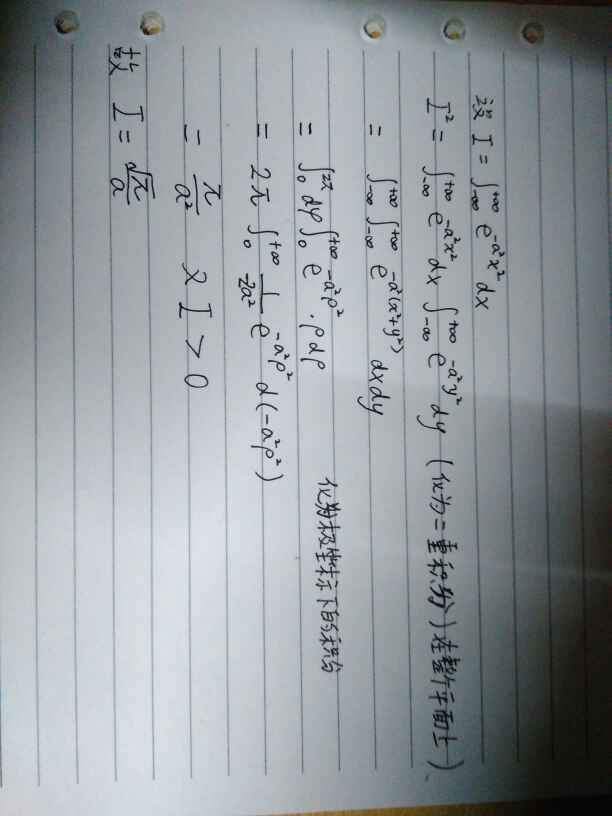 设 I = ∫_{-∞}^{+∞} e^{-a²x²} dx
I² = ∫_{-∞}^{+∞} e^{-a²x²} dx ∫_{-∞}^{+∞} e^{-a²y²} dy (化为二重积分)在整个平面上)
= ∫_{-∞}^{+∞} ∫_{-∞}^{+∞} e^{-a²(x²+y²)} dxdy
= ∫_0^{2π} dφ ∫_0^{+∞} e^{-a²ρ²} · ρdρ 化为极坐标下的积分
= 2π ∫_0^{+∞} \frac{1}{-2a²} e^{-a²ρ²} d(-a²ρ²)
= \frac{π}{a²} 又 I > 0
故 I = \frac{√π}{a}